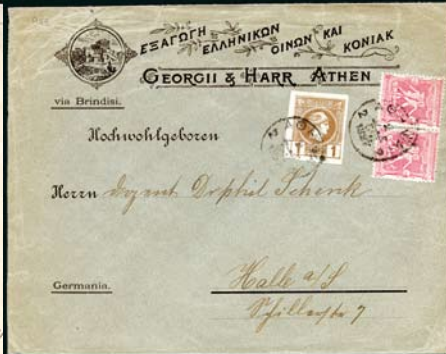 ΕΞΑΓΩΓΗ ΕΛΛΗΝΙΚΩΝ ΟΙΝΩΝ ΚΑΙ ΚΟΝΙΑΚ
GEORGII & HARR ATHEN
via Brindisi.
Hochwohlgeboren
Herrn Dr phil Schenk
Germania.
Halle a/S
Schillerstr 7
1 1